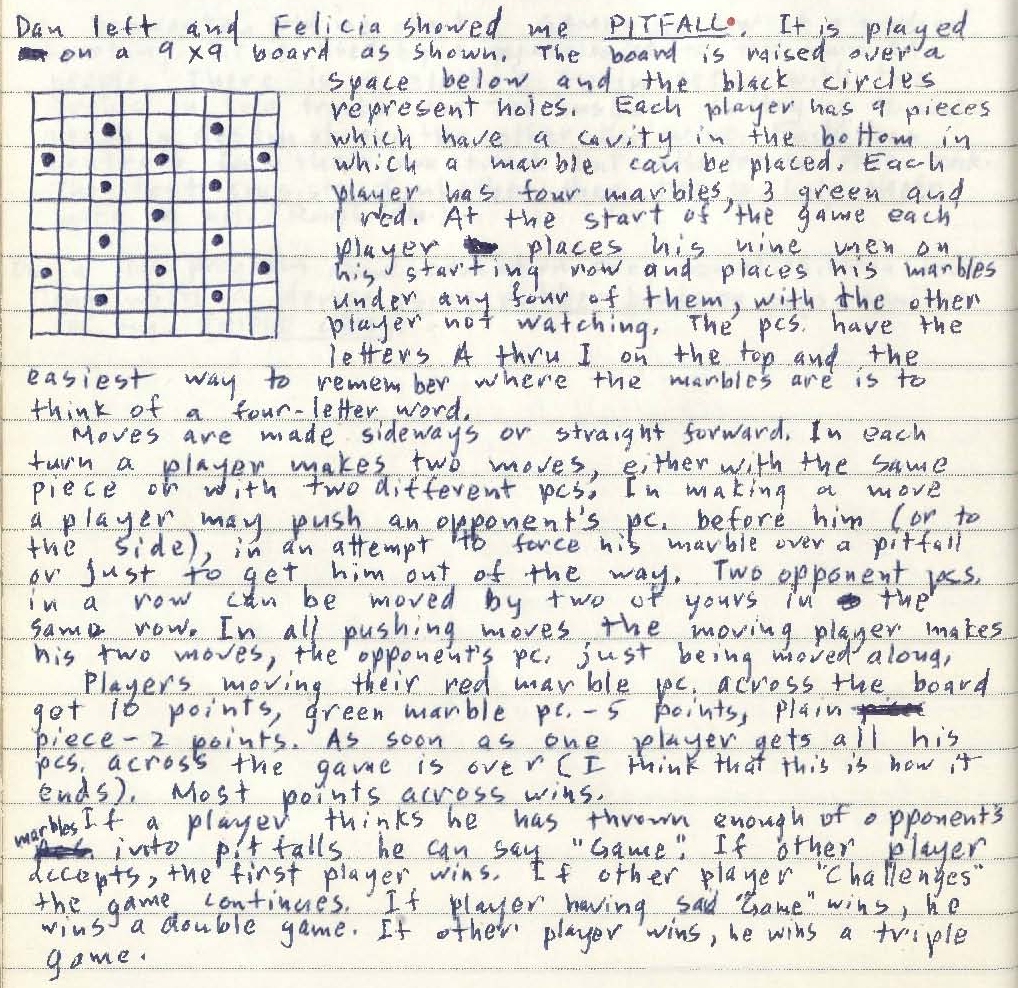 Dan left and Felicia showed me PITFALL. It is played
on a 9 x9 board as shown. The board is raised over a
space below and the black circles
represent holes. Each player has 9 pieces
which have a cavity in the bottom in
which a marble can be placed. Each
player has four marbles, 3 green and
1 red. At the start of the game each
player places his nine men on
his starting row and places his marbles
under any four of them, with the other
player not watching. The pcs. have the
letters A thru I on the top and the
easiest way to remember where the marbles are is to
think of a four-letter word.
Moves are made sideways or straight forward. In each
turn a player makes two moves, either with the same
piece or with two different pcs. In making a move
a player may push an opponent's pc. before him (or to
the side), in an attempt to force his marble over a pitfall
or just to get him out of the way. Two opponent pcs.
in a row can be moved by two of yours in the
same row. In all pushing moves the moving player makes
his two moves, the opponent's pc. just being moved along.
Players moving their red marble pc. across the board
get 10 points, green marble pc. - 5 points, plain
piece - 2 points. As soon as one player gets all his
pcs. across the game is over (I think that this is how it
ends). Most points across wins.
If a player thinks he has thrown enough of opponent's
marbles into pitfalls he can say "Game". If other player
accepts, the first player wins. If other player "Challenges"
the game continues. If player having said "Game" wins, he
wins a double game. If other player wins, he wins a triple
game.